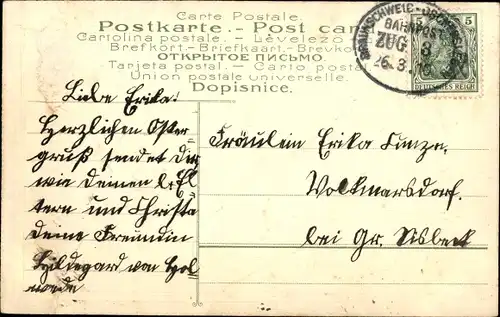 Carte Postale.
Postkarte. - Post card
Cartolina postale. - Levelező
Brefkort. - Briefkaart. - Brevkort
ОТКРЫТОЕ ПИСЬМО.
Tarjeta postal. - Carto postal
Union postale universelle.
Dopisnice.
BAHNPOST
ZUG 3
26.3.
5 5
DEUTSCHES REICH
Liebe Erika!
Herzlichen Oster
gruß sendet Dir
wie Deinen l. El
tern und Christa
Deine Freundin
Hildegard von Hol
wede
Fräulein Erika
Volkmarsdorf.
bei Gr.